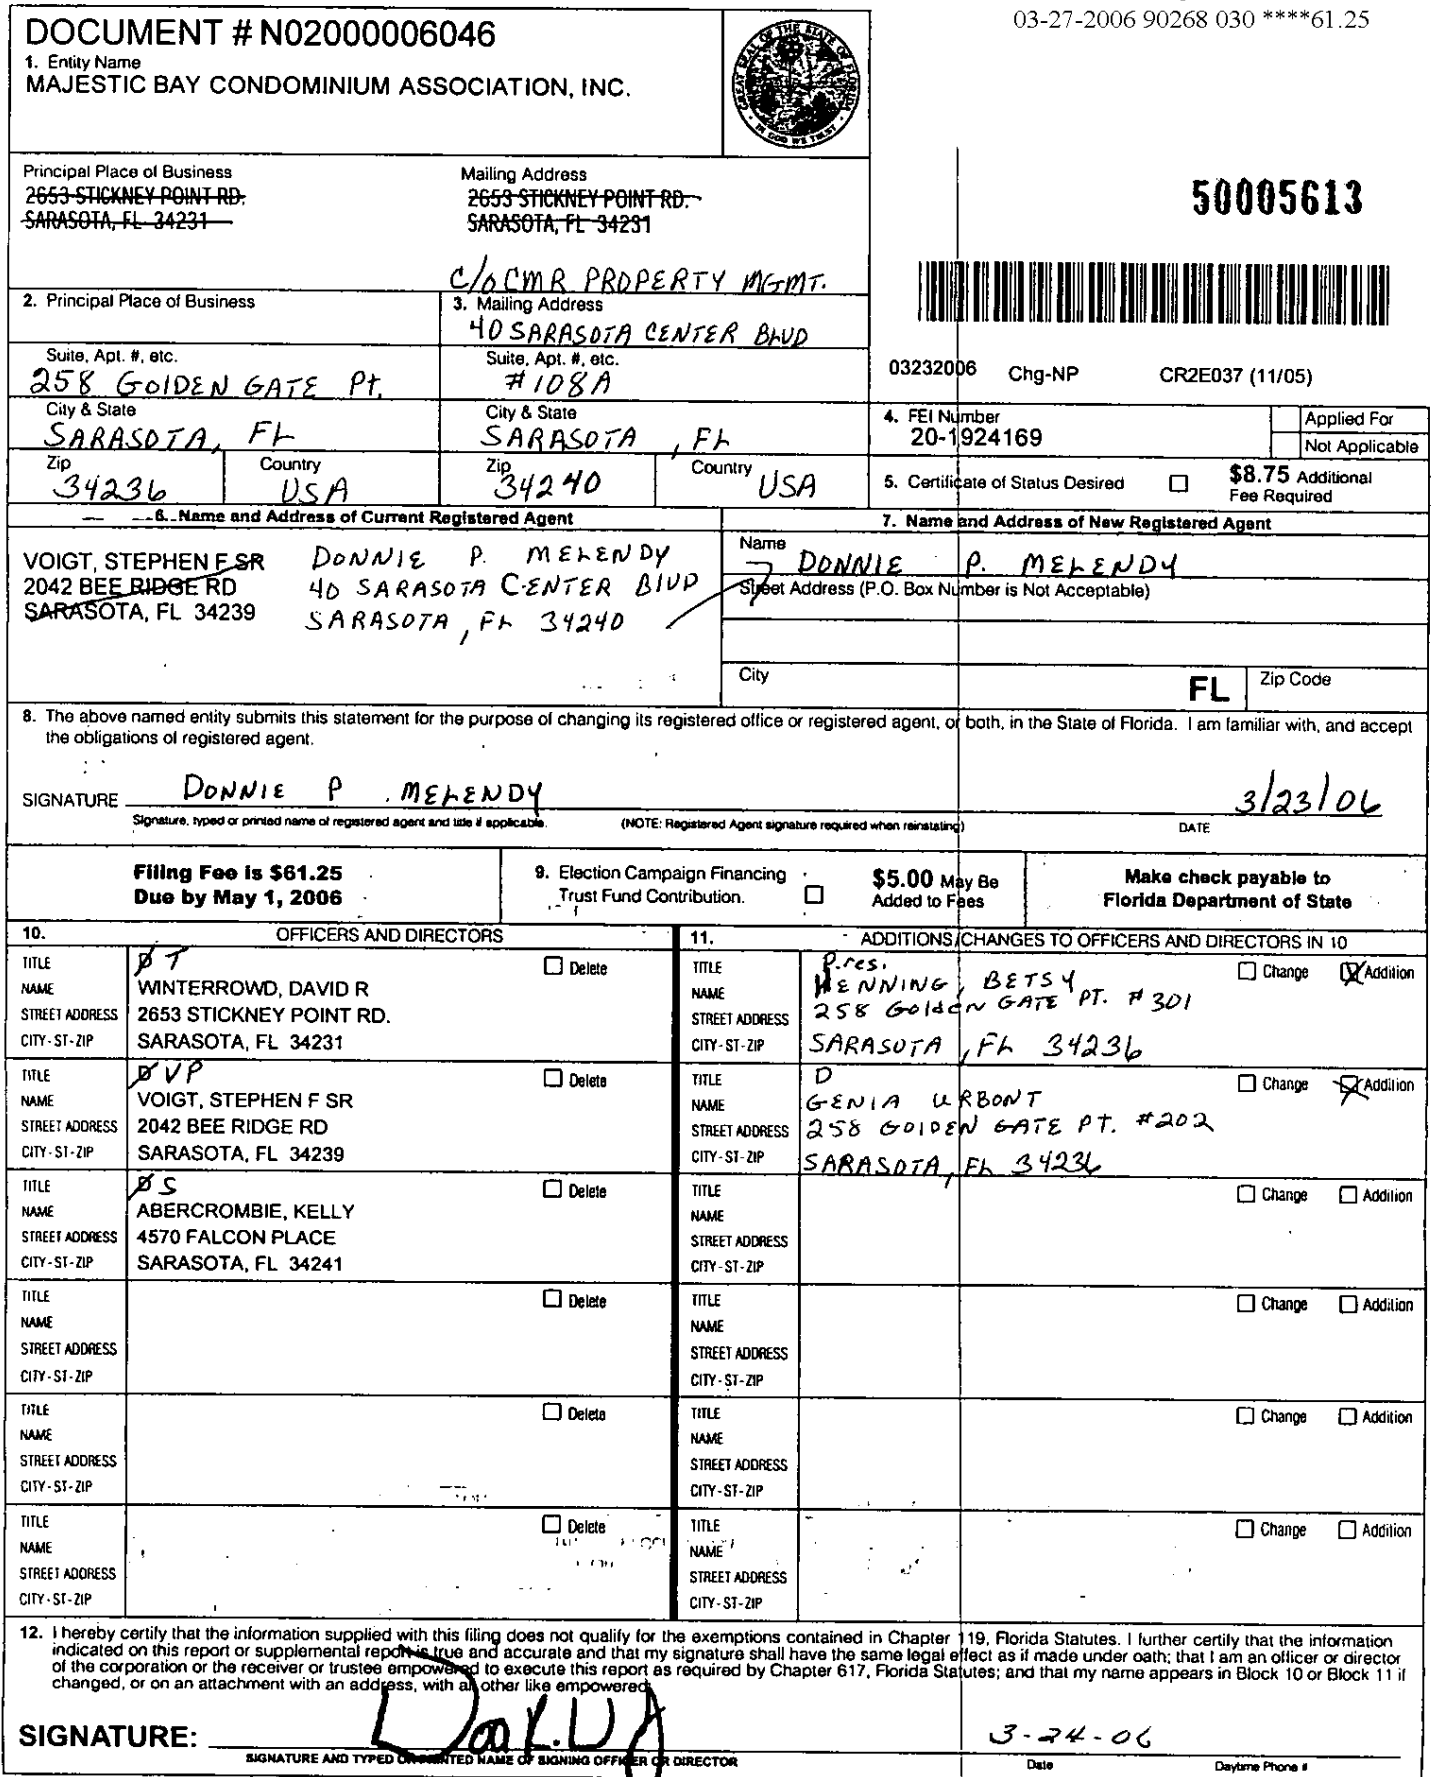 03-27-2006 90268 030 ****61.25
DOCUMENT # N02000006046
1. Entity Name
MAJESTIC BAY CONDOMINIUM ASSOCIATION, INC.
GREAT SEAL OF THE STATE OF FLORIDA
IN GOD WE TRUST
Principal Place of Business
2653 STICKNEY POINT RD.
SARASOTA, FL 34231
Mailing Address
2653 STICKNEY POINT RD.
SARASOTA, FL 34231
50005613
C/O CMR PROPERTY MGMT.
2. Principal Place of Business
3. Mailing Address
40 SARASOTA CENTER BLVD
Suite, Apt. #, etc.
258 GOLDEN GATE Pt.
Suite, Apt. #, etc.
#108A
03232006 Chg-NP CR2E037 (11/05)
City & State
SARASOTA, FL
City & State
SARASOTA, FL
4. FEI Number
20-1924169
Applied For
Not Applicable
Zip
34236
Country
USA
Zip
34240
Country
USA
5. Certificate of Status Desired
$8.75 Additional
Fee Required
6. Name and Address of Current Registered Agent
7. Name and Address of New Registered Agent
VOIGT, STEPHEN F SR
2042 BEE RIDGE RD
SARASOTA, FL 34239
DONNIE P. MELENDY
40 SARASOTA CENTER BLVD
SARASOTA, FL 34240
Name
DONNIE P. MELENDY
Street Address (P.O. Box Number is Not Acceptable)
City
FL
Zip Code
8. The above named entity submits this statement for the purpose of changing its registered office or registered agent, or both, in the State of Florida. I am familiar with, and accept
the obligations of registered agent.
SIGNATURE DONNIE P. MELENDY
3/23/06
Signature, typed or printed name of registered agent and title if applicable. (NOTE: Registered Agent signature required when reinstating)
DATE
Filing Fee is $61.25
Due by May 1, 2006
9. Election Campaign Financing
Trust Fund Contribution.
$5.00 May Be
Added to Fees
Make check payable to
Florida Department of State
10. OFFICERS AND DIRECTORS
11. ADDITIONS/CHANGES TO OFFICERS AND DIRECTORS IN 10
TITLE D T Delete
NAME WINTERROWD, DAVID R
STREET ADDRESS 2653 STICKNEY POINT RD.
CITY-ST-ZIP SARASOTA, FL 34231
TITLE Pres. Change Addition
NAME HENNING, BETSY
STREET ADDRESS 258 Golden GATE PT. #301
CITY-ST-ZIP SARASOTA, FL 34236
TITLE D VP Delete
NAME VOIGT, STEPHEN F SR
STREET ADDRESS 2042 BEE RIDGE RD
CITY-ST-ZIP SARASOTA, FL 34239
TITLE D Change Addition
NAME GENIA URBONT
STREET ADDRESS 258 GOLDEN GATE PT. #202
CITY-ST-ZIP SARASOTA, FL 34236
TITLE D S Delete
NAME ABERCROMBIE, KELLY
STREET ADDRESS 4570 FALCON PLACE
CITY-ST-ZIP SARASOTA, FL 34241
TITLE Change Addition
NAME
STREET ADDRESS
CITY-ST-ZIP
TITLE Delete
NAME
STREET ADDRESS
CITY-ST-ZIP
TITLE Change Addition
NAME
STREET ADDRESS
CITY-ST-ZIP
TITLE Delete
NAME
STREET ADDRESS
CITY-ST-ZIP
TITLE Change Addition
NAME
STREET ADDRESS
CITY-ST-ZIP
TITLE Delete
NAME
STREET ADDRESS
CITY-ST-ZIP
TITLE Change Addition
NAME
STREET ADDRESS
CITY-ST-ZIP
12. I hereby certify that the information supplied with this filing does not qualify for the exemptions contained in Chapter 119, Florida Statutes. I further certify that the information
indicated on this report or supplemental report is true and accurate and that my signature shall have the same legal effect as if made under oath; that I am an officer or director
of the corporation or the receiver or trustee empowered to execute this report as required by Chapter 617, Florida Statutes; and that my name appears in Block 10 or Block 11 if
changed, or on an attachment with an address, with all other like empowered.
SIGNATURE:
3-24-06
SIGNATURE AND TYPED OR PRINTED NAME OF SIGNING OFFICER OR DIRECTOR
Date
Daytime Phone #